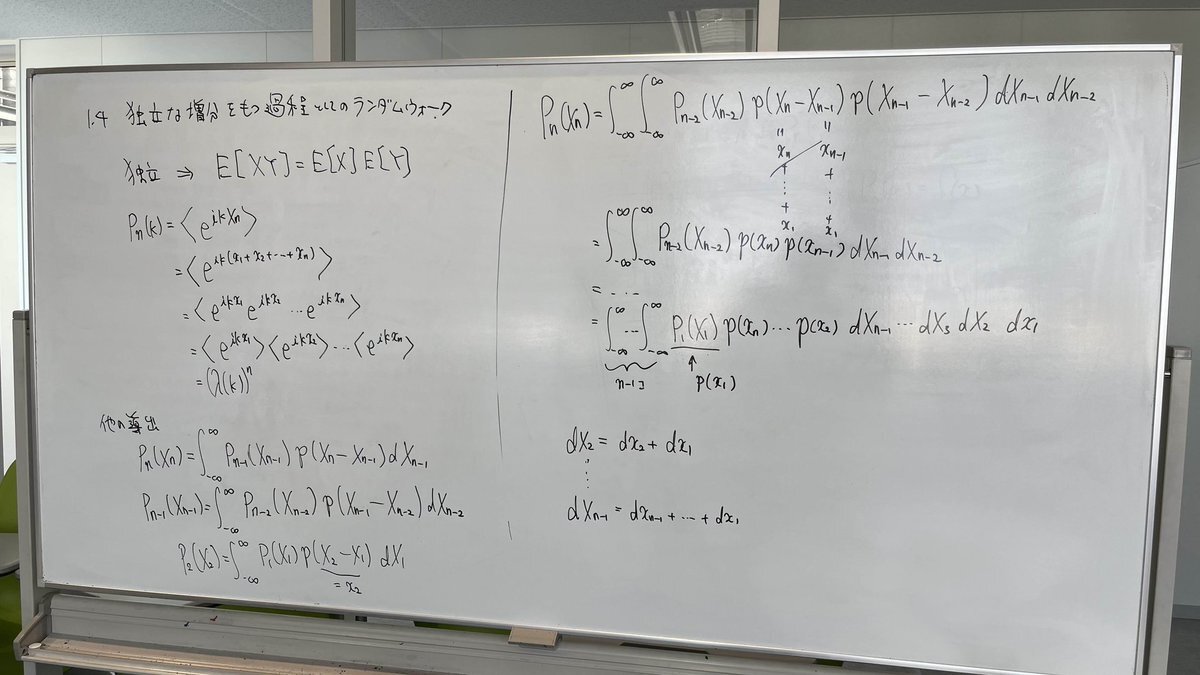 1.4 独立な増分をもつ過程としてのランダムウォーク
独立 ⇒ E[XY] = E[X] E[Y]
Pₙ(k) = ⟨e^{ikXₙ}⟩
= ⟨e^{ik(x₁+x₂+…+xₙ)}⟩
= ⟨e^{ikx₁} e^{ikx₂} … e^{ikxₙ}⟩
= ⟨e^{ikx₁}⟩⟨e^{ikx₂}⟩…⟨e^{ikxₙ}⟩
= (λ(k))ⁿ
他の導出
Pₙ(Xₙ) = ∫_{-∞}^{∞} Pₙ₋₁(Xₙ₋₁) p(Xₙ − Xₙ₋₁) dXₙ₋₁
Pₙ₋₁(Xₙ₋₁) = ∫_{-∞}^{∞} Pₙ₋₂(Xₙ₋₂) p(Xₙ₋₁ − Xₙ₋₂) dXₙ₋₂
P₂(X₂) = ∫_{-∞}^{∞} P₁(X₁) p(X₂ − X₁) dX₁
= x₂
Pₙ(Xₙ) = ∫_{-∞}^{∞} ∫_{-∞}^{∞} Pₙ₋₂(Xₙ₋₂) p(Xₙ − Xₙ₋₁) p(Xₙ₋₁ − Xₙ₋₂) dXₙ₋₁ dXₙ₋₂
" "
xₙ xₙ₋₁
+ +
⋮ ⋮
+ +
x₁ x₁
= ∫_{-∞}^{∞} ∫_{-∞}^{∞} Pₙ₋₂(Xₙ₋₂) p(xₙ) p(xₙ₋₁) dXₙ₋₁ dXₙ₋₂
= ....
= ∫_{-∞}^{∞} … ∫_{-∞}^{∞} P₁(X₁) p(xₙ) … p(x₂) dXₙ₋₁ … dX₃ dX₂ dx₁
n-1コ ↑ p(x₁)
dX₂ = dx₂ + dx₁
⋮
dXₙ₋₁ = dxₙ₋₁ + … + dx₁